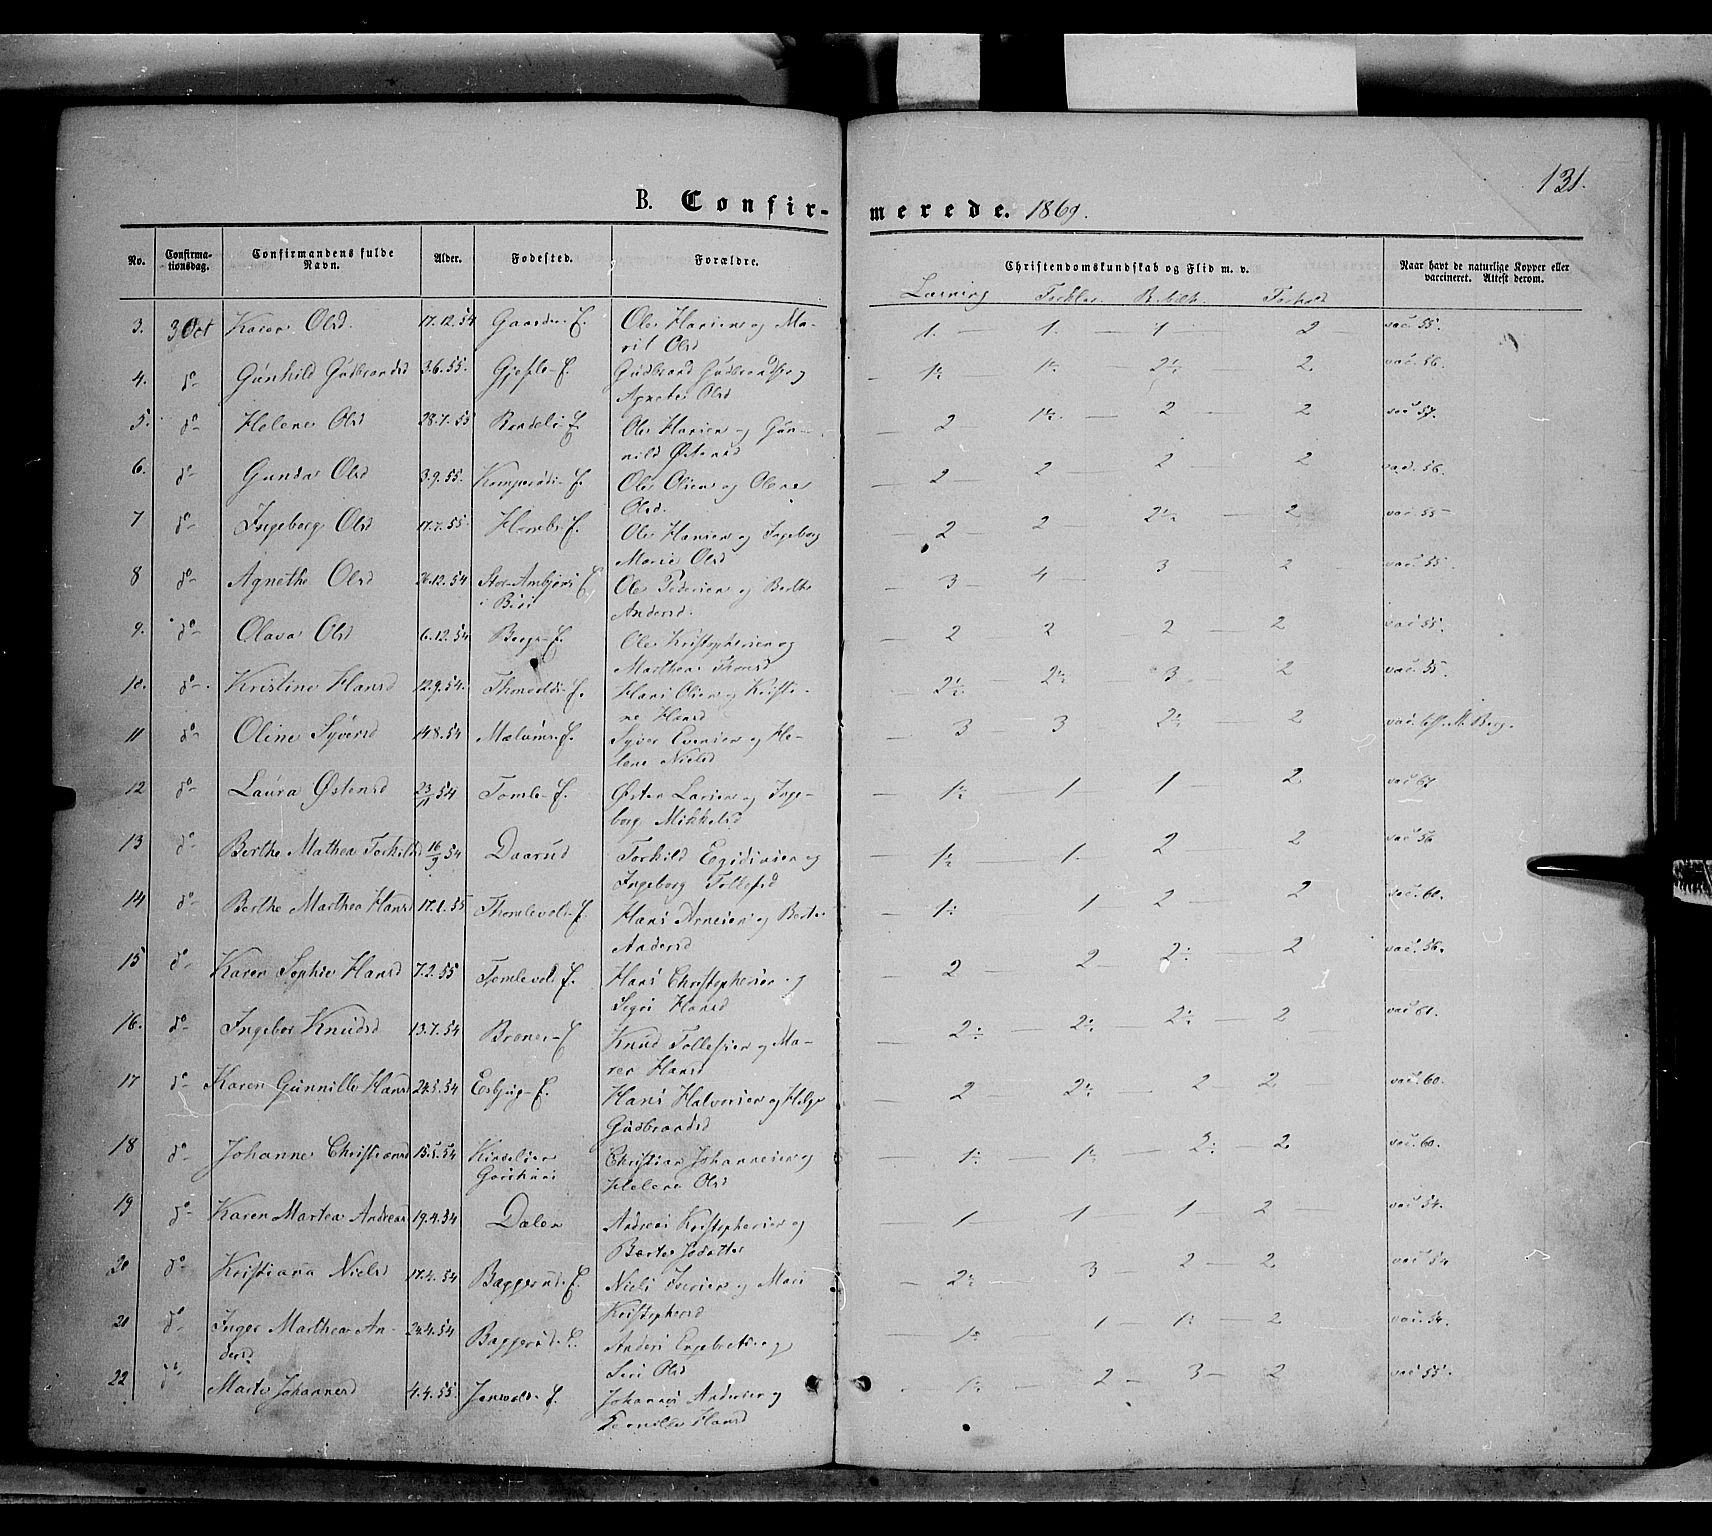 131.
B. Confir-merede. 1869.
No. Confirmationsdag. Confirmandens fulde Navn. Alder. Fødested. Forældre. Christendomskundskab og Flid m. v. Naar havt de naturlige Kopper eller vaccineret. Attest derom.
Læsning Forhold
3. 3 Oct Karen Olsd. 17.12.54 E. Ole Hansen og Ma- 1. — 1. — 1 — 2 — vac. 55.
rit Olsd
4. do Gunhild Gudbrandsd 3.6.55. E. Gudbrand Gudbrands og — 1½ 1½ — 2½ — 2. vac. 56.
Agnethe Olsd
5. do Helene Olsd 28.7.55 E. Ole Hansen og Gun- — 2 1½. — 2 — 2 vac. 57.
nild Østensd
6. do Gunda Olsd 3.9.55. E. Ole Olsen og Olene — 2 — 2 — 2 — 2 vac. 56.
Olsd.
7 do Ingeborg Olsd 17.7.55 E. Ole Hansen og Ingeborg — 2 — 2 2½ — 2 vac. 55
Marie Olsd
8 do Agnethe Olsd 26.12.54 E. Ole Pedersen og Berthe — 3 — 4 — 3 — 2 vac. 55.
i Biri Andersd.
9. do Olava Olsd 6.12.54 Berge E. Ole Kristophersen og — 2 2 2 — 2 vac. 55.
Marthea
10. do Kristine Hansd 12.9.54. E. Hans Olsen og Kristi- — 2½ — 2½ — 3 2 vac. 55.
ne Hansd
11 do Oline Syversd 14.8.54 Mælums E. Syver Evensen og He- 3 3 — 2½ — 2 vac. M. Berg.
lene Nielsd
12 do Laura Østensd 23/11 54 Tomle E. Østen Larsen og Inge- — 1½ — 1 — 1 — 2. vac 67
borg Mikkelsd
13 do Berthe Mathea Torkilsd 16/9 54 Daarud Torkild Egidiusen og — 1½ — 1. 2 2 vac 56
Ingeborg Tollefsd
14 do Berthe Marthea Hansd 17.1.55 E. Hans Arnesen og Berte — 1½ 1 — 2 — 2 vac. 60.
Andersd
15 do Karen Sophie Hansd 7.2.55 E. Hans Christophersen og — 2 2 — 2½ — 2 vac. 56.
Hansd
16. do Ingebor Knudsd 13.7.54 E Knud Tollefsen og Ma- — 2½ — 2½ — 2½ — 2 vac 61.
ren Hansd
17 do Karen Gunnille Hansd 24.5.54 Esbjug E. Hans Halvorsen og Helge — 2 — 2½ — 2 — 2 vac. 60.
Gudbrandsd
18 do Johanne Christiansd 15.5.54 Christian Johannesen og — 1½ — 1½ — 2 vac. 60.
Helene Olsd
19 do Karen Martea Andreasd 19.4.54 Dalen Andreas Kristophersen og — 1 — 1 — 1 2 — vac. 54.
20 do Kristiana Nielsd 17.4.54 Baggerud E. Niels Iversen og Mari — 2½ — 3 — 2 — 2 vac 54
Kristophersd
21 do Inger Marthea An- 24.4.54 Baggerud E. Anders Engebretsen og — 1½ — 1 — 1½ — 2 vac. 54.
dersd Siri Olsd
22 do Marte Johannesd 4.4.55. E. Johannes Andersen og 1½ — 2 — 3 — 2 vac 55.
Pernille Hansd